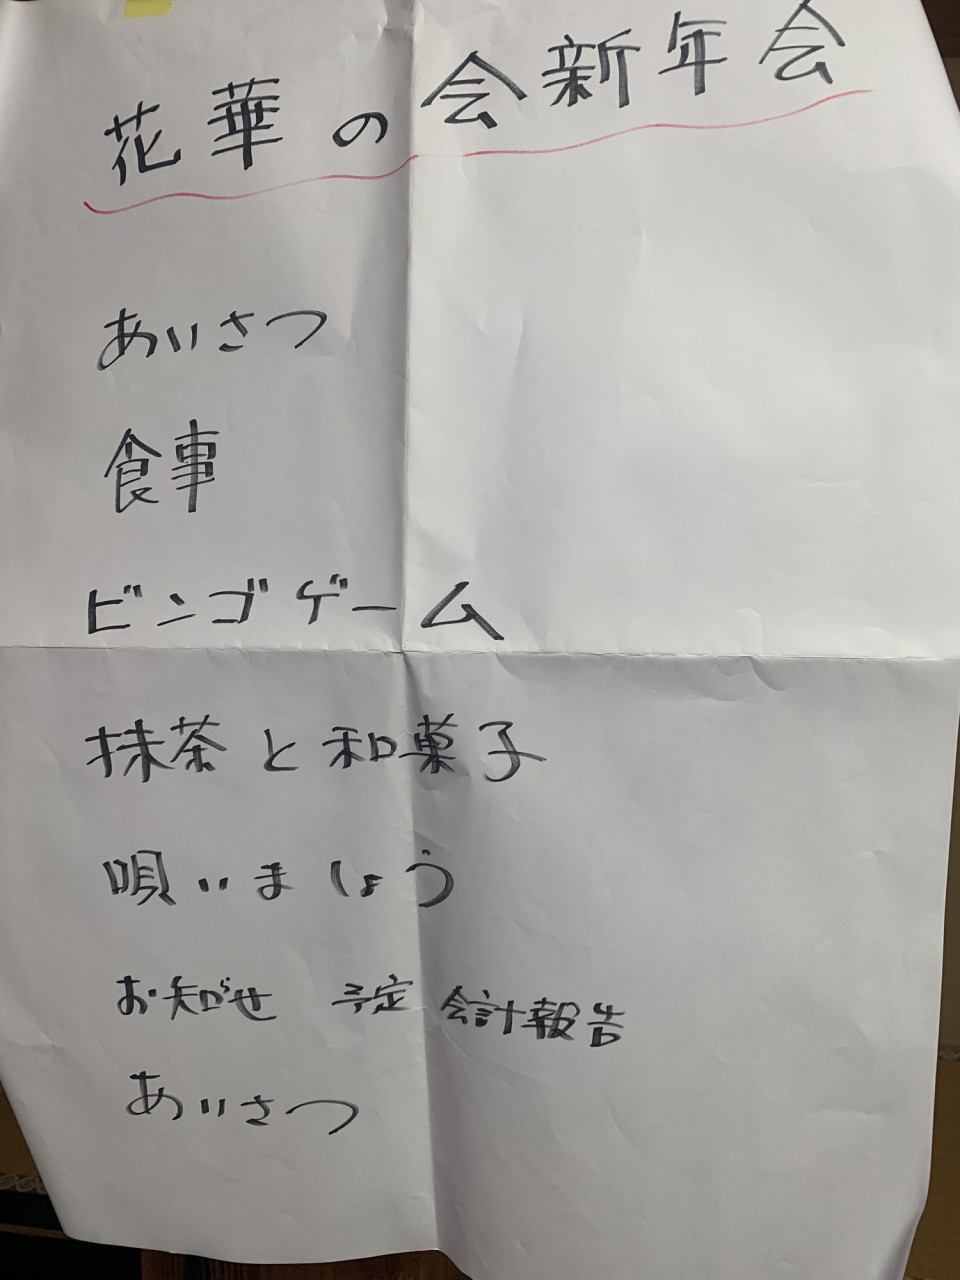 花華の会新年会
あいさつ
食事
ビンゴゲーム
抹茶と和菓子
唄いましょう
お知らせ 予定 会計報告
あいさつ